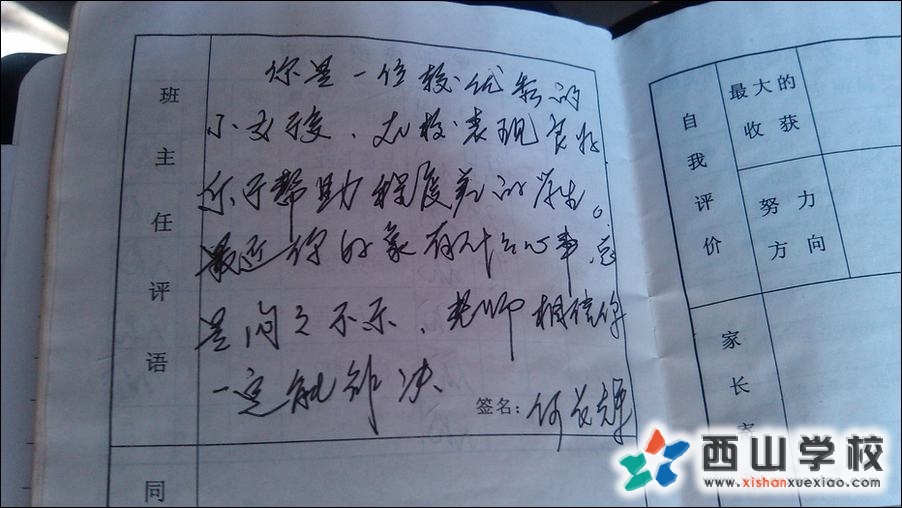 班主任评语
你是一位较优秀的
小女孩、在校表现良好
乐于帮助程度差的学生。
最近你好象有什么心事总
是闷闷不乐、老师相信你
一定能解决
签名:何
同
自我评价
最大的收获
努力方向
家长
西山学校
www.xishanxuexiao.com